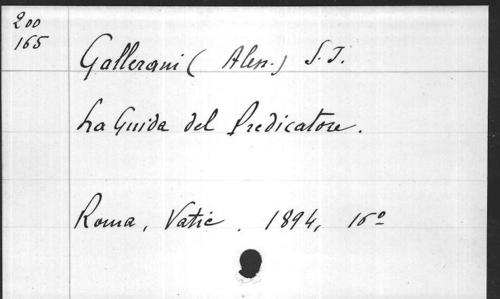 200
165
Gallerani (Aless.) S. J.
La Guida del Predicatore.
Roma, Vatic. 1894, 16º